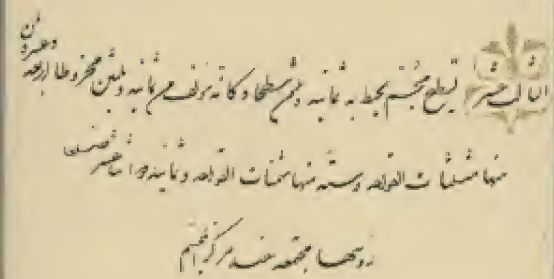 الثالث عشر تسطيح مجسم يحيط به ثمانية وثلثون سطحا وكانه مؤلف من ثمانية وثلثين مخروطا اربعة وعشرون
منها مثلثات القواعد وستة منها مثمنات القواعد وثمانية اثنا عشر
رؤسها مجتمعة عند مركز المجسم